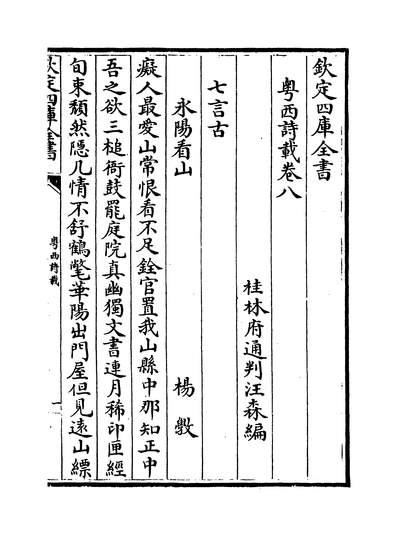 欽定四庫全書
粵西詩載卷八
桂林府通判汪森編
七言古
永陽看山　楊㪟
癡人最愛山常恨看不足銓官置我山縣中那知正中
吾之欲三槌衙鼓罷庭院真幽獨文書連月稀印匣經
旬束頹然隱几情不舒鶴氅華陽出門屋但見逺山縹
欽定四庫全書
粵西詩載
一